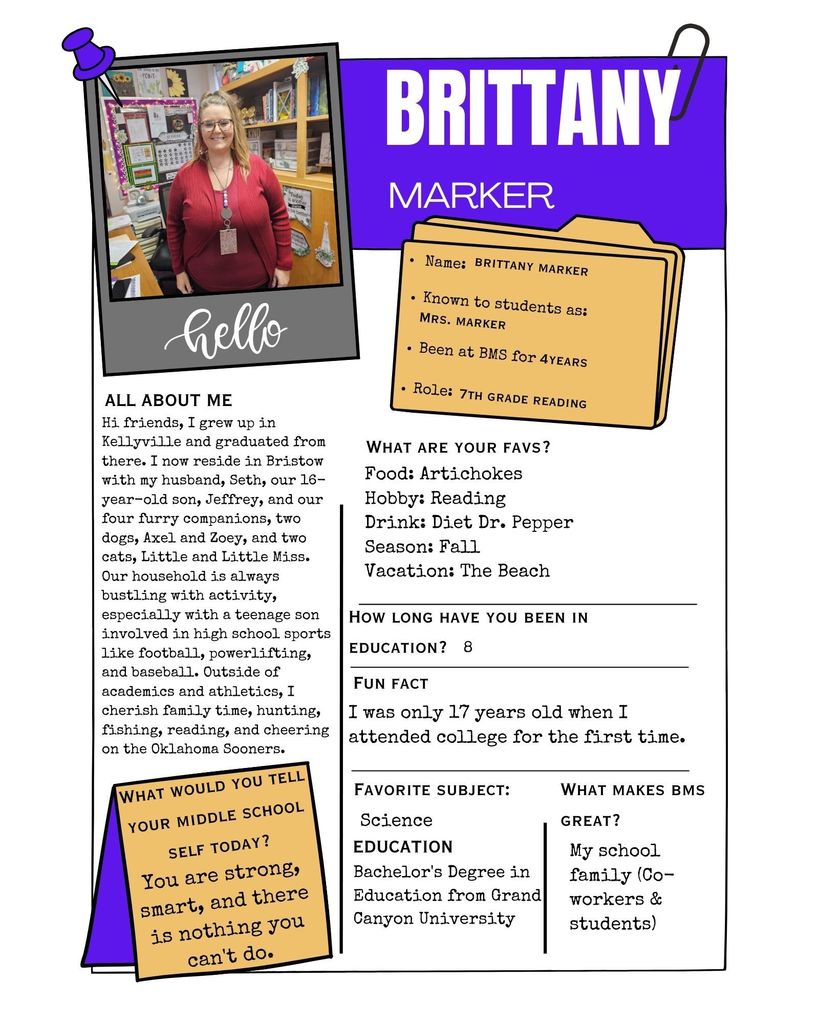 BRITTANY
MARKER
hello
• Name: BRITTANY MARKER
• Known to students as:
MRS. MARKER
• Been at BMS for 4YEARS
• Role: 7TH GRADE READING
ALL ABOUT ME
Hi friends, I grew up in
Kellyville and graduated from
there. I now reside in Bristow
with my husband, Seth, our 16-
year-old son, Jeffrey, and our
four furry companions, two
dogs, Axel and Zoey, and two
cats, Little and Little Miss.
Our household is always
bustling with activity,
especially with a teenage son
involved in high school sports
like football, powerlifting,
and baseball. Outside of
academics and athletics, I
cherish family time, hunting,
fishing, reading, and cheering
on the Oklahoma Sooners.
WHAT WOULD YOU TELL
YOUR MIDDLE SCHOOL
SELF TODAY?
You are strong,
smart, and there
is nothing you
can't do.
WHAT ARE YOUR FAVS?
Food: Artichokes
Hobby: Reading
Drink: Diet Dr. Pepper
Season: Fall
Vacation: The Beach
HOW LONG HAVE YOU BEEN IN
EDUCATION? 8
FUN FACT
I was only 17 years old when I
attended college for the first time.
FAVORITE SUBJECT:
Science
EDUCATION
Bachelor's Degree in
Education from Grand
Canyon University
WHAT MAKES BMS
GREAT?
My school
family (Co-
workers &
students)